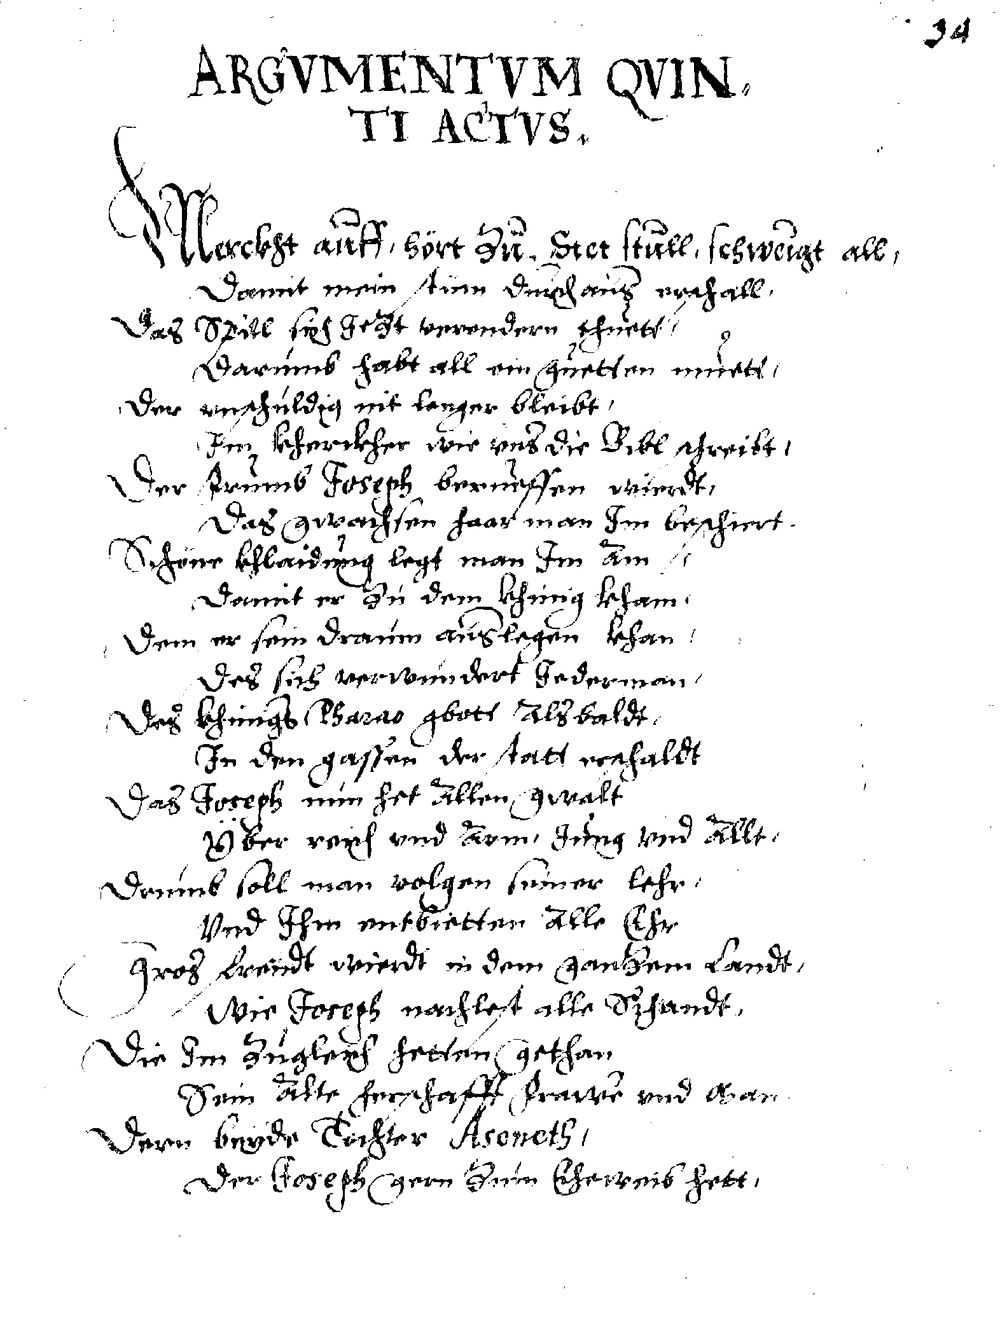 34
ARGVMENTVM QVIN,
TI ACTVS.
Merckht auff, hört zu, Stet stull, schweigt all,
Damit mein stim durchaus erschall,
Das Spill sich Jezt verendern thuett,
Darumb habt all ein guetten muett,
Der unschuldig nit lenger bleibt,
Im kherckher wie uns die Bibl schreibt,
Der frumb Joseph berueffen wierdt,
Das gwachsen haar man Im beschiert.
Schöne khlaidung legt man Im An
Damit er zu dem khunig kham,
Dem er sein draum auslegen khan,
Des sich verwundert Jederman,
Des khunigs Pharao gbott Alsbaldt,
In den gassen der statt erschaldt
Das Joseph nun het Allen gwalt
Über reich und Arm, Jung und Allt,
Drumb soll man volgen seiner lehr,
Und Ihm entbietten Alle Ehr
Gros freudt wierdt in dem ganzem Landt,
Wie Joseph nachlest alle Schandt,
Die Im zugleich hetten gethan
Sein Alte herschafft frawe und Man
Dern beyde Tochter Aseneth,
Der Joseph gern zum Eheweib hett,